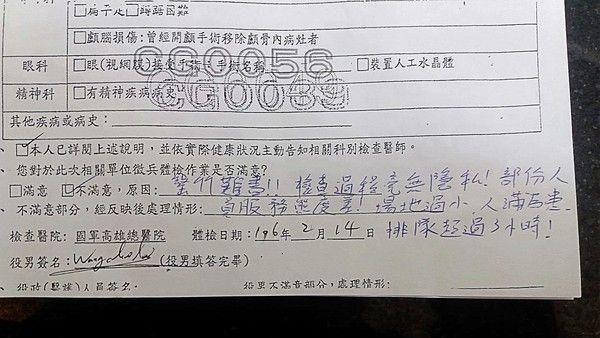 □扁平足□蹲踞困難
□顱腦損傷:曾經開顱手術移除顱骨內病灶者
眼科 □眼(視網膜)接受手術,手術名稱 □裝置人工水晶體
精神科 □有精神疾病病史
其他疾病或病史:
、☑本人已詳閱上述說明,並依實際健康狀況主動告知相關科別檢查醫師。
、您對於此次相關單位徵兵體檢作業是否滿意?
□滿意 ☑不滿意,原因: 罄竹難書!! 檢查過程竟無隱私! 部份人
、不滿意部分,經反映後處理情形: 員服務態度差! 場地過小,人滿為患
檢查醫院: 國軍高雄總醫院 體檢日期: 106年2月14日 排隊超過3小時!
役男簽名: (役男填答完畢)
、役政(醫護)人員簽名: 役男不滿意部分,處理情形:
CG0049